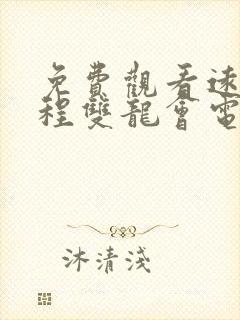 免費觀看速
程雙龍會電
沐清淺